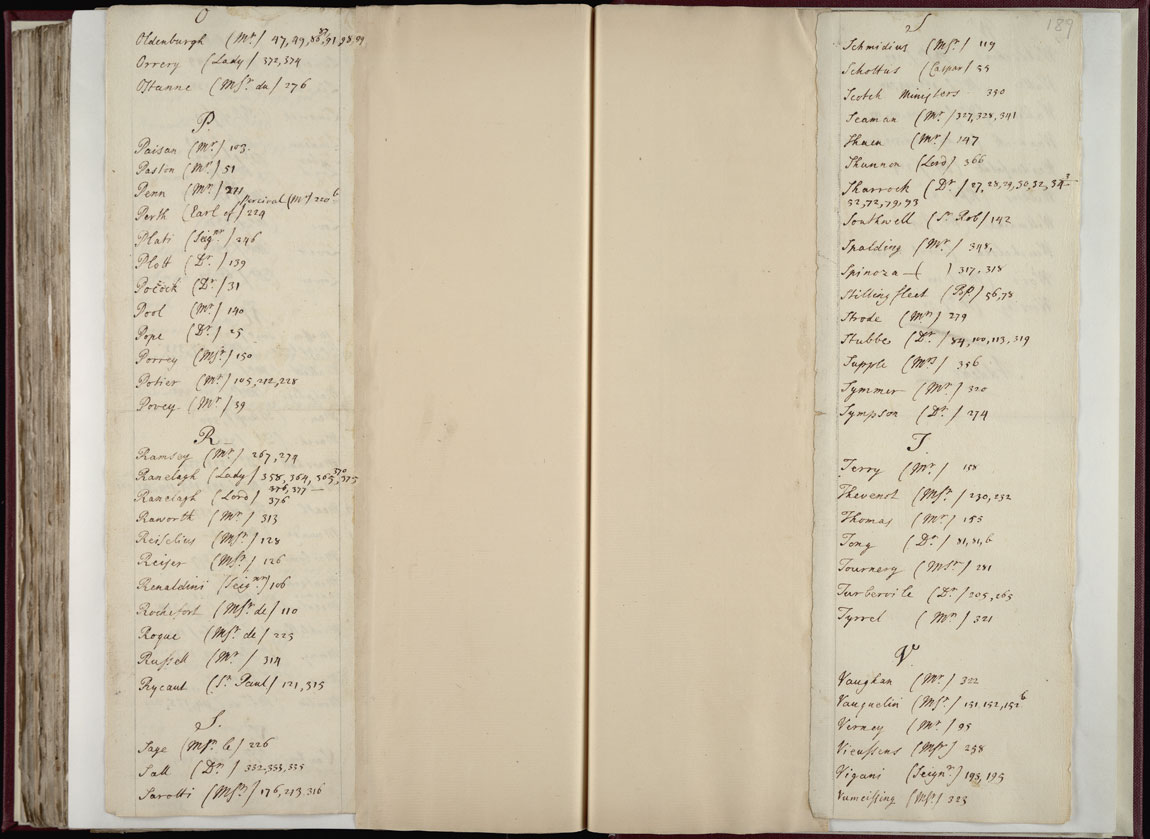 O
Oldenburgh (Mr) 47, 49, 88, 91, 98, 99
Orrery (Lady) 372, 374
Ostanne (Msr. du) 276
P.
Paisan (Mr) 103.
Paston (Mr) 51
Penn (Mr)
Percival (Mr) 220 b
Perth (Earl of) 224
Plati (Seignr) 246
Plott (Dr) 139
Pocock (Dr) 31
Pool (Mr) 140
Pope (Dr) 25
Porrey (Msr.) 150
Potier (Mr) 105, 212, 228
Povey (Mr) 39
R
Ramsey (Mr) 267, 279
Ranelagh (Lady) 358, 364, 365, 370, 375
376, 377
Ranelagh (Lord) 376
Raworth (Mr.) 313
Reiselius (Msr.) 128
Reiser (Msr.) 126
Renaldini (Seignr) 106
Rochefort (Msr. de) 110
Roque (Msr. de) 223
Russell (Mr) 314
Rycaut (Sr. Paul) 121, 315
S.
Sage (Msr. le) 226
Sall (Dr) 332, 333, 335
Sarotti (Msr) 176, 213, 316
189
S
Schmidius (Msr.) 119
Schottus (Caspar) 55
Scotch Ministers 330
Seaman (Mr.) 327, 328, 341
(Mr) 147
Shannon (Lord) 366
Sharrock (Dr) 27, 28, 29, 30, 32, 34
32, 72, 79, 93
Southwell (Sr. Rob) 142
Spalding (Mr.) 348,
Spinoza ( ) 317, 318
Stillingfleet (Bp.) 56, 78
Strode (Mr) 279
Stubbe (Dr) 84, 100, 113, 319
Supple (Mr) 356
Symmer (Mr) 320
Sympson (Dr) 274
T.
Terry (Mr) 158
Thevenot (Msr) 230, 232
Thomas (Mr) 155
Tong (Dr) 81, 81, b
Tournery (Msr.) 281
Turbervile (Dr) 205, 265
Tyrrel (Mr) 321
V.
Vaughan (Mr) 322
Vauquelin (Msr.) 151, 152, 152 b
Verney (Mr) 95
Vieussens (Msr) 258
Vigani (Seignr) 193, 195
Vumeissing (Msr) 323